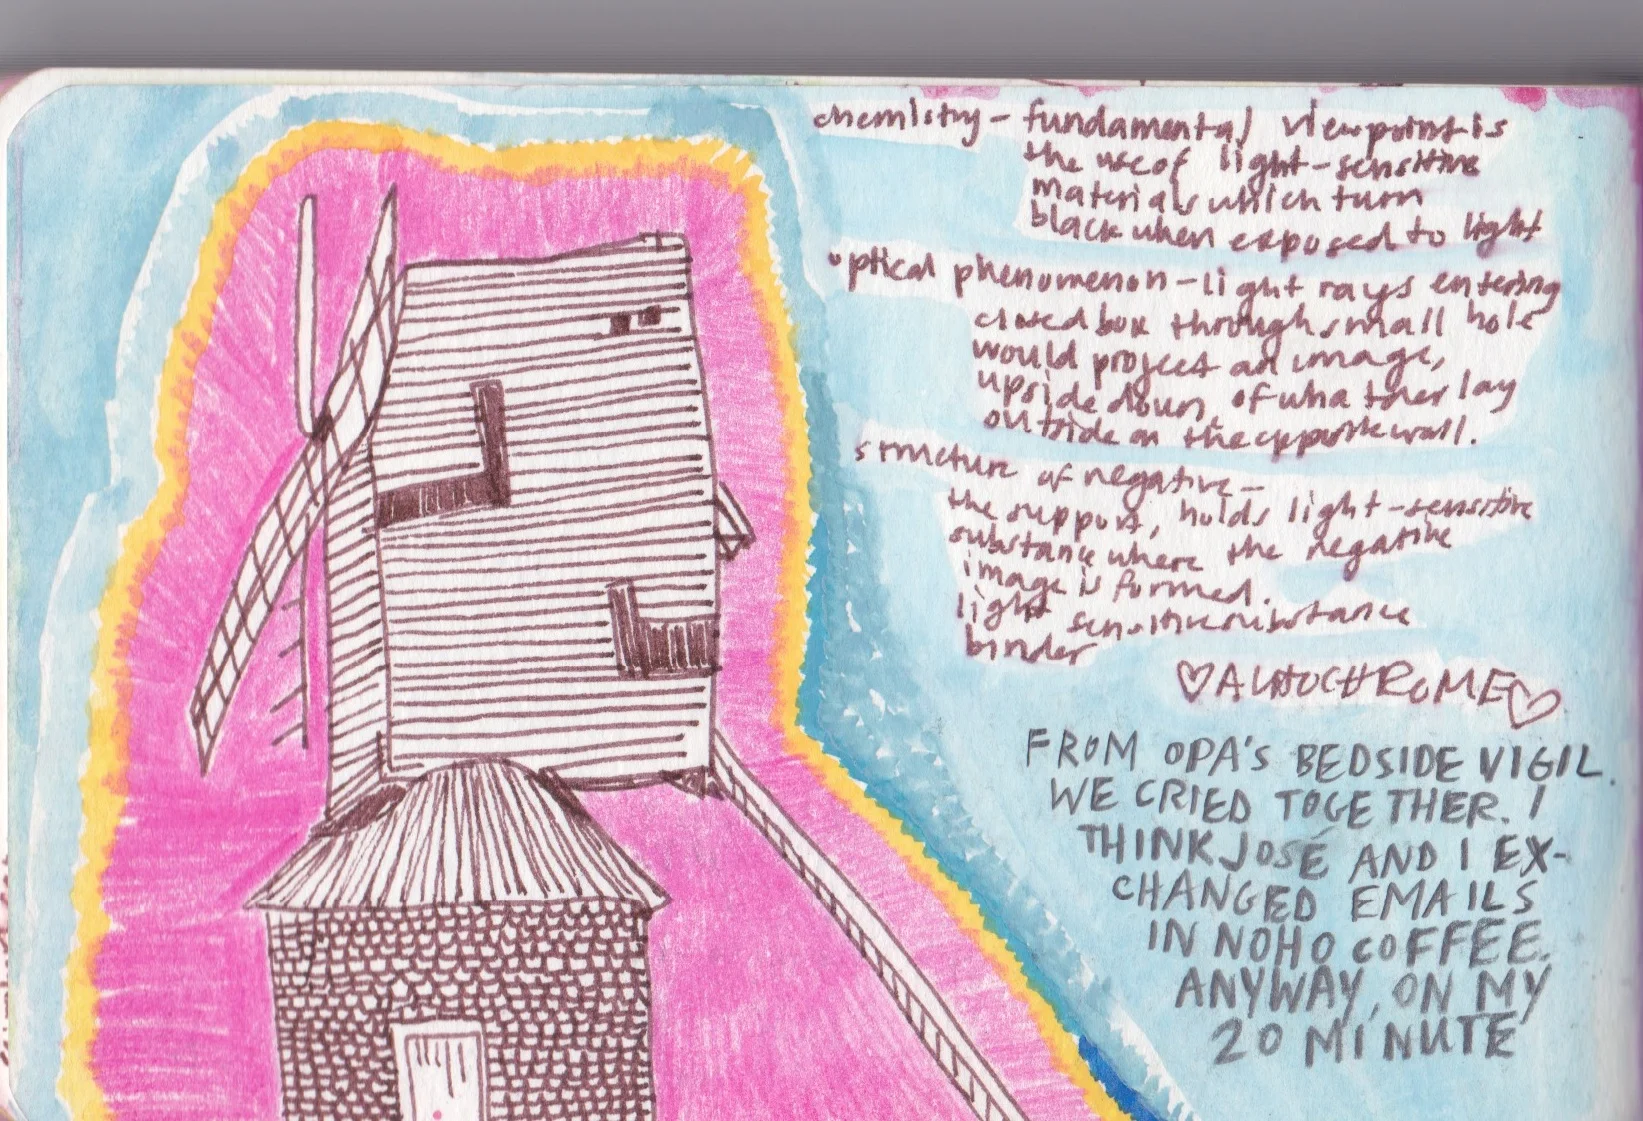 chemistry – fundamental viewpoint is
the use of light-sensitive
materials which turn
black when exposed to light
optical phenomenon – light rays entering
closed box through small hole
would project an image,
upside down, of whatever lay
outside on the opposite wall.
structure of negative –
the support, holds light-sensitive
substance where the negative
image is formed.
light sensitive substance
binder
♡AUTOCHROME♡
FROM OPA'S BEDSIDE VIGIL.
WE CRIED TOGETHER. I
THINK JOSÉ AND I EX-
CHANGED EMAILS
IN NOHO COFFEE.
ANYWAY, ON MY
20 MINUTE